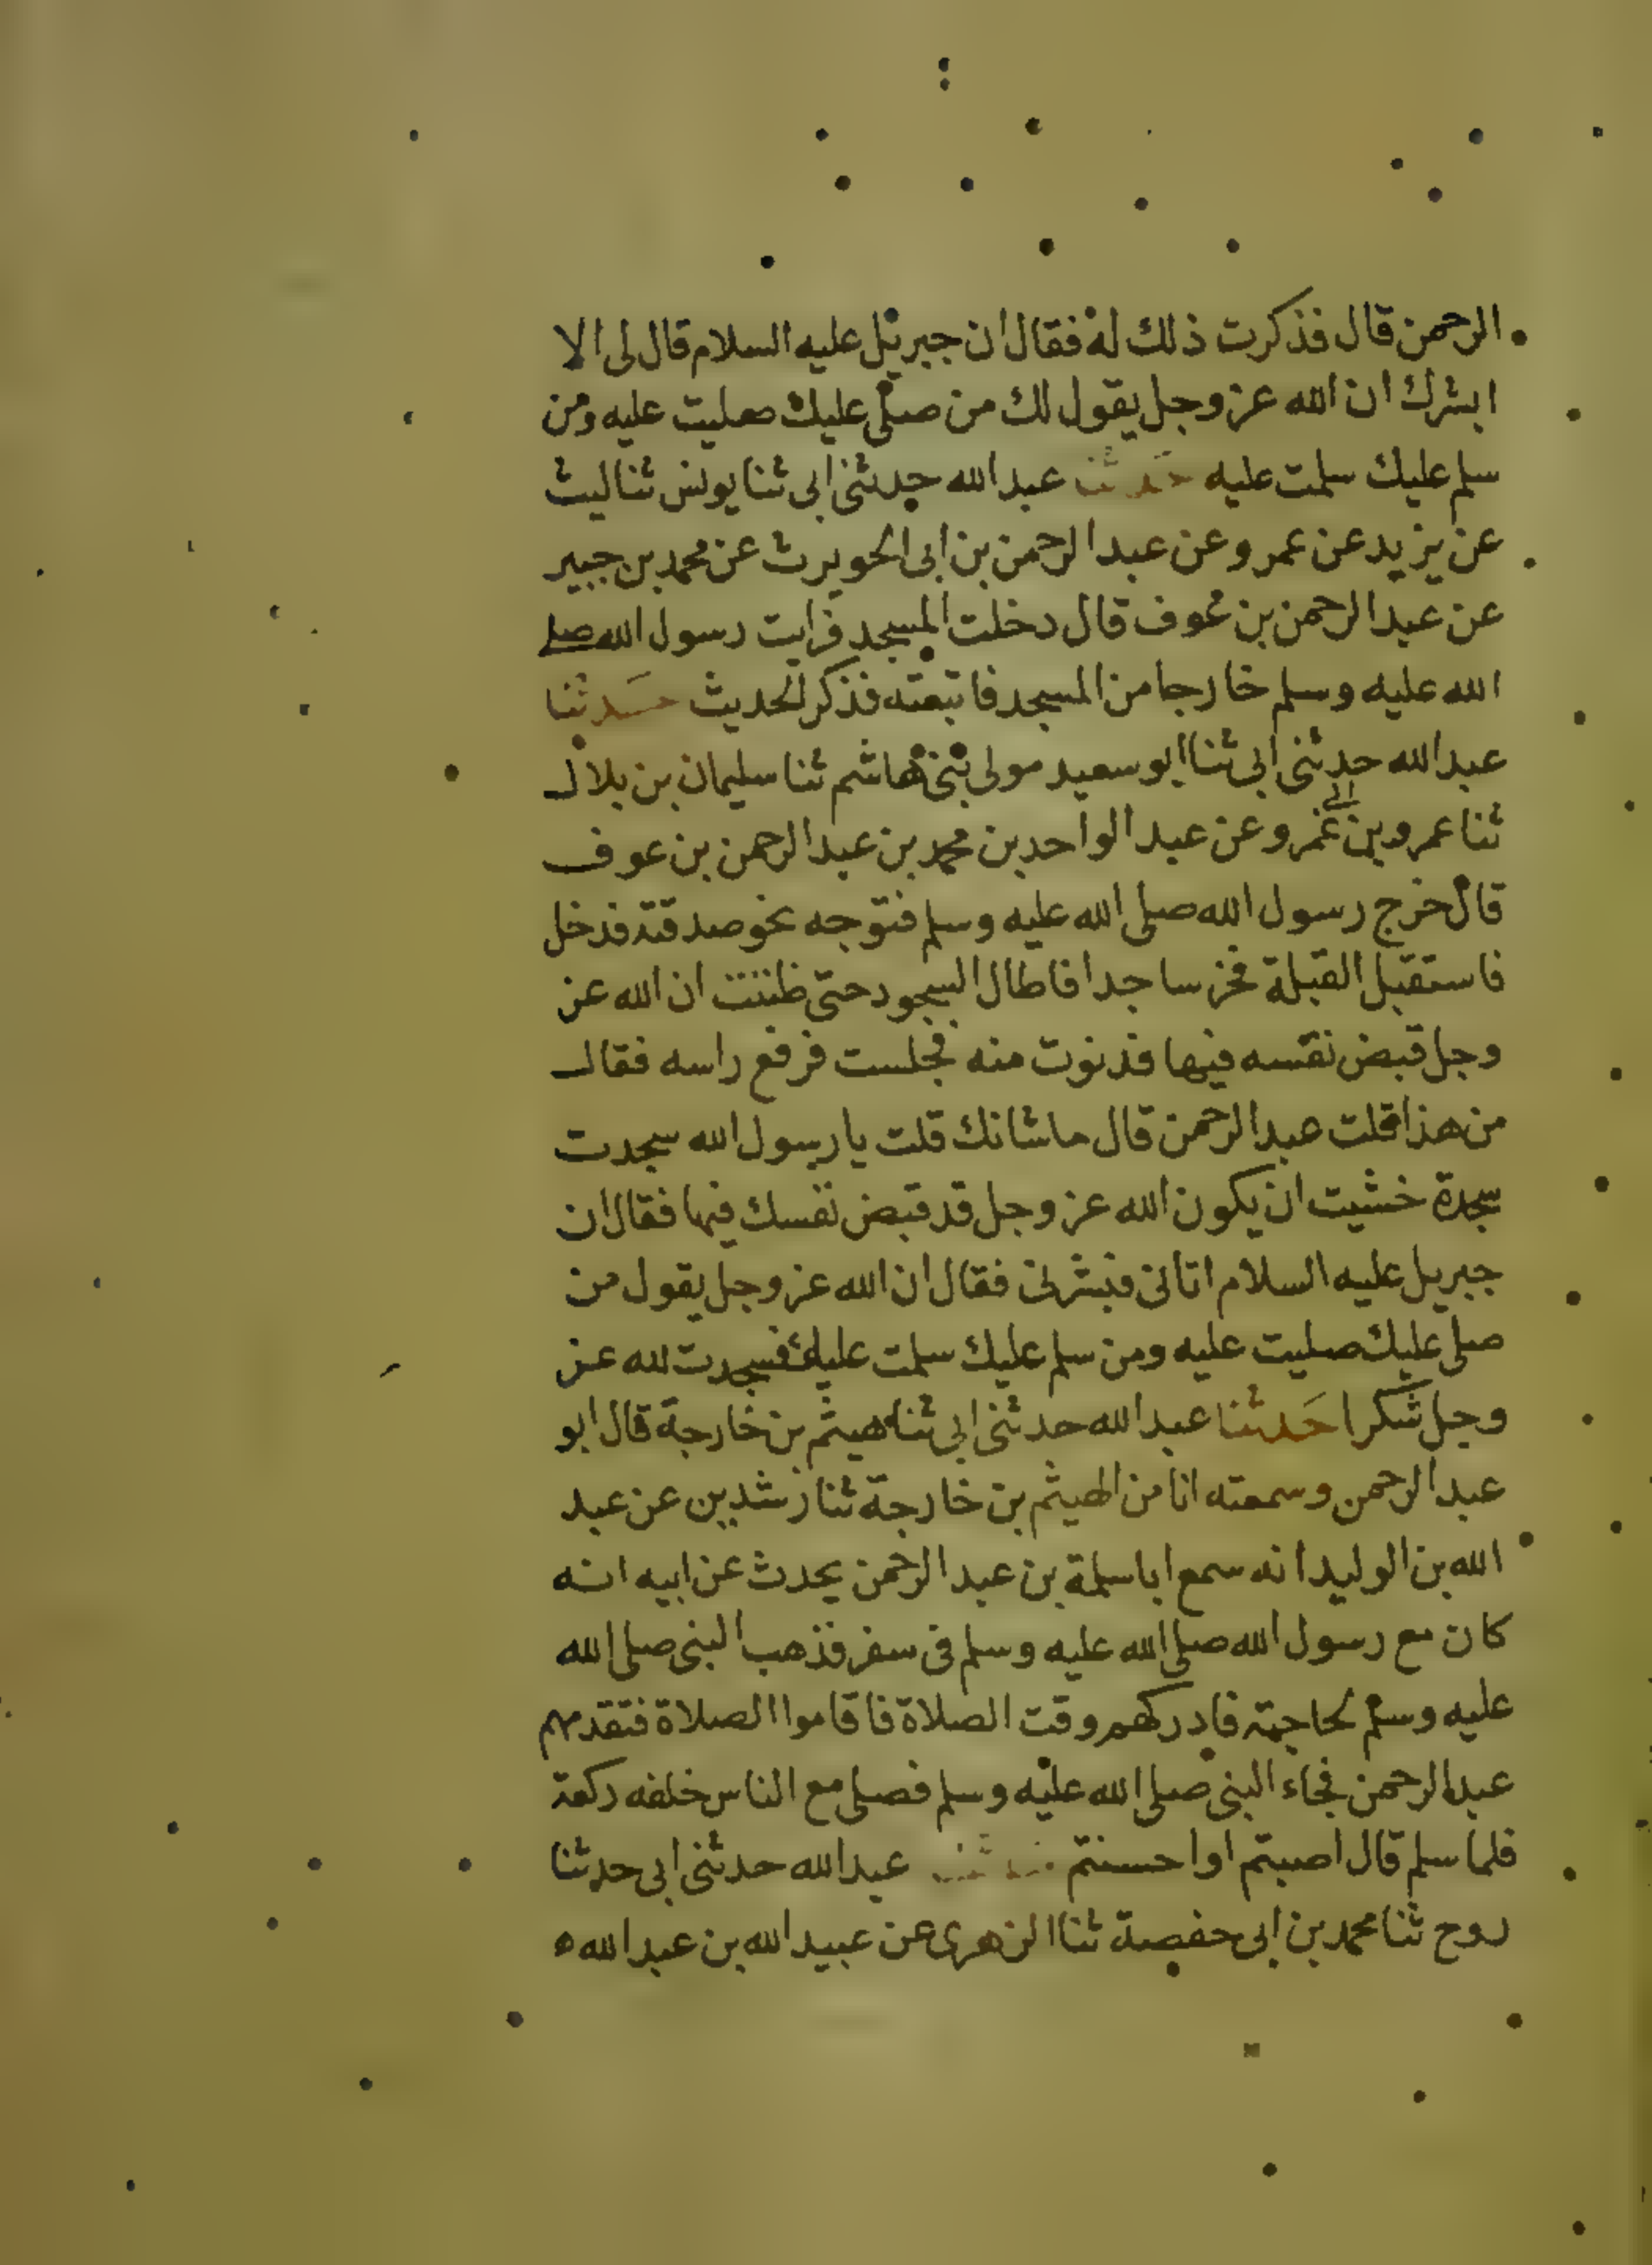 الرحمن قال فذكرت ذلك له فقال ان جبريل عليه السلام قال لى الا
ابشرك ان الله عز وجل يقول لك من صلى عليك صليت عليه ومن
سلم عليك سلمت عليه حدثنا عبد الله حدثنى ابى ثنا يونس ثنا ليث
عن يزيد عن عمرو عن عبد الرحمن بن ابى الحويرث عن محمد بن جبير
عن عبد الرحمن بن عوف قال دخلت المسجد فرايت رسول الله صلى
الله عليه وسلم خارجا من المسجد فاتبعته فذكر الحديث حدثنا
عبد الله حدثنى ابى ثنا ابو سعيد مولى بنى هاشم ثنا سليمان بن بلال
ثنا عمرو بن ابى عمرو عن عبد الواحد بن محمد بن عبد الرحمن بن عوف
قال خرج رسول الله صلى الله عليه وسلم فتوجه نحو صدقته فدخل
فاستقبل القبلة فخر ساجدا فاطال السجود حتى ظننت ان الله عز
وجل قبض نفسه فيها فدنوت منه فجلست فرفع راسه فقال
من هذا قلت عبد الرحمن قال ما شانك قلت يا رسول الله سجدت
سجدة خشيت ان يكون الله عز وجل قد قبض نفسك فيها فقال ان
جبريل عليه السلام اتانى فبشرنى فقال ان الله عز وجل يقول من
صلى عليك صليت عليه ومن سلم عليك سلمت عليه فسجدت لله عز
وجل شكرا حدثنا عبد الله حدثنى ابى ثنا هيثم بن خارجة قال ابو
عبد الرحمن وسمعته انا من الهيثم بن خارجة ثنا رشدين عن عبد
الله بن الوليد انه سمع ابا سلمة بن عبد الرحمن يحدث عن ابيه انه
كان مع رسول الله صلى الله عليه وسلم فى سفر فذهب النبى صلى الله
عليه وسلم لحاجته فادركهم وقت الصلاة فاقاموا الصلاة فتقدمهم
عبد الرحمن فجاء النبى صلى الله عليه وسلم فصلى مع الناس خلفه ركعة
فلما سلم قال اصبتم او احسنتم حدثنا عبد الله حدثنى ابى حدثنا
روح ثنا محمد بن ابى حفصة ثنا الزهرى عن عبيد الله بن عبد الله ه